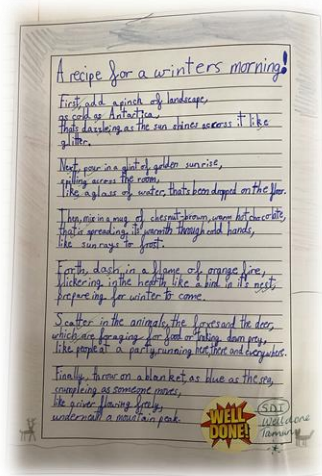 A recipe for a winters morning!
First, add a pinch of landscape,
as cold as Antartica,
thats dazzleing as the sun shines across it like
glitter.
Next, pour in a glint of golden sunrise,
spilling across the room,
like a glass of water, that's been dropped on the floor.
Then, mix in a mug of chesnut-brown, warm hot chocolate,
that is spreading, its' warmth through cold hands,
like sun rays to frost.
Forth, dash in a flame of orange fire,
flickering in the hearth, like a bird in it's nest,
prepareing for winter to come.
Scatter in the animals, the foxes and the deer,
which are foraging for food or taking down prey,
like people at a party, running here, there and everywhere.
Finally, throw on a blanket, as blue as the sea,
crumpleing as someone moves,
like a river flowing freely,
underneath a mountain peak.
WELL
DONE!
SDI
Well done